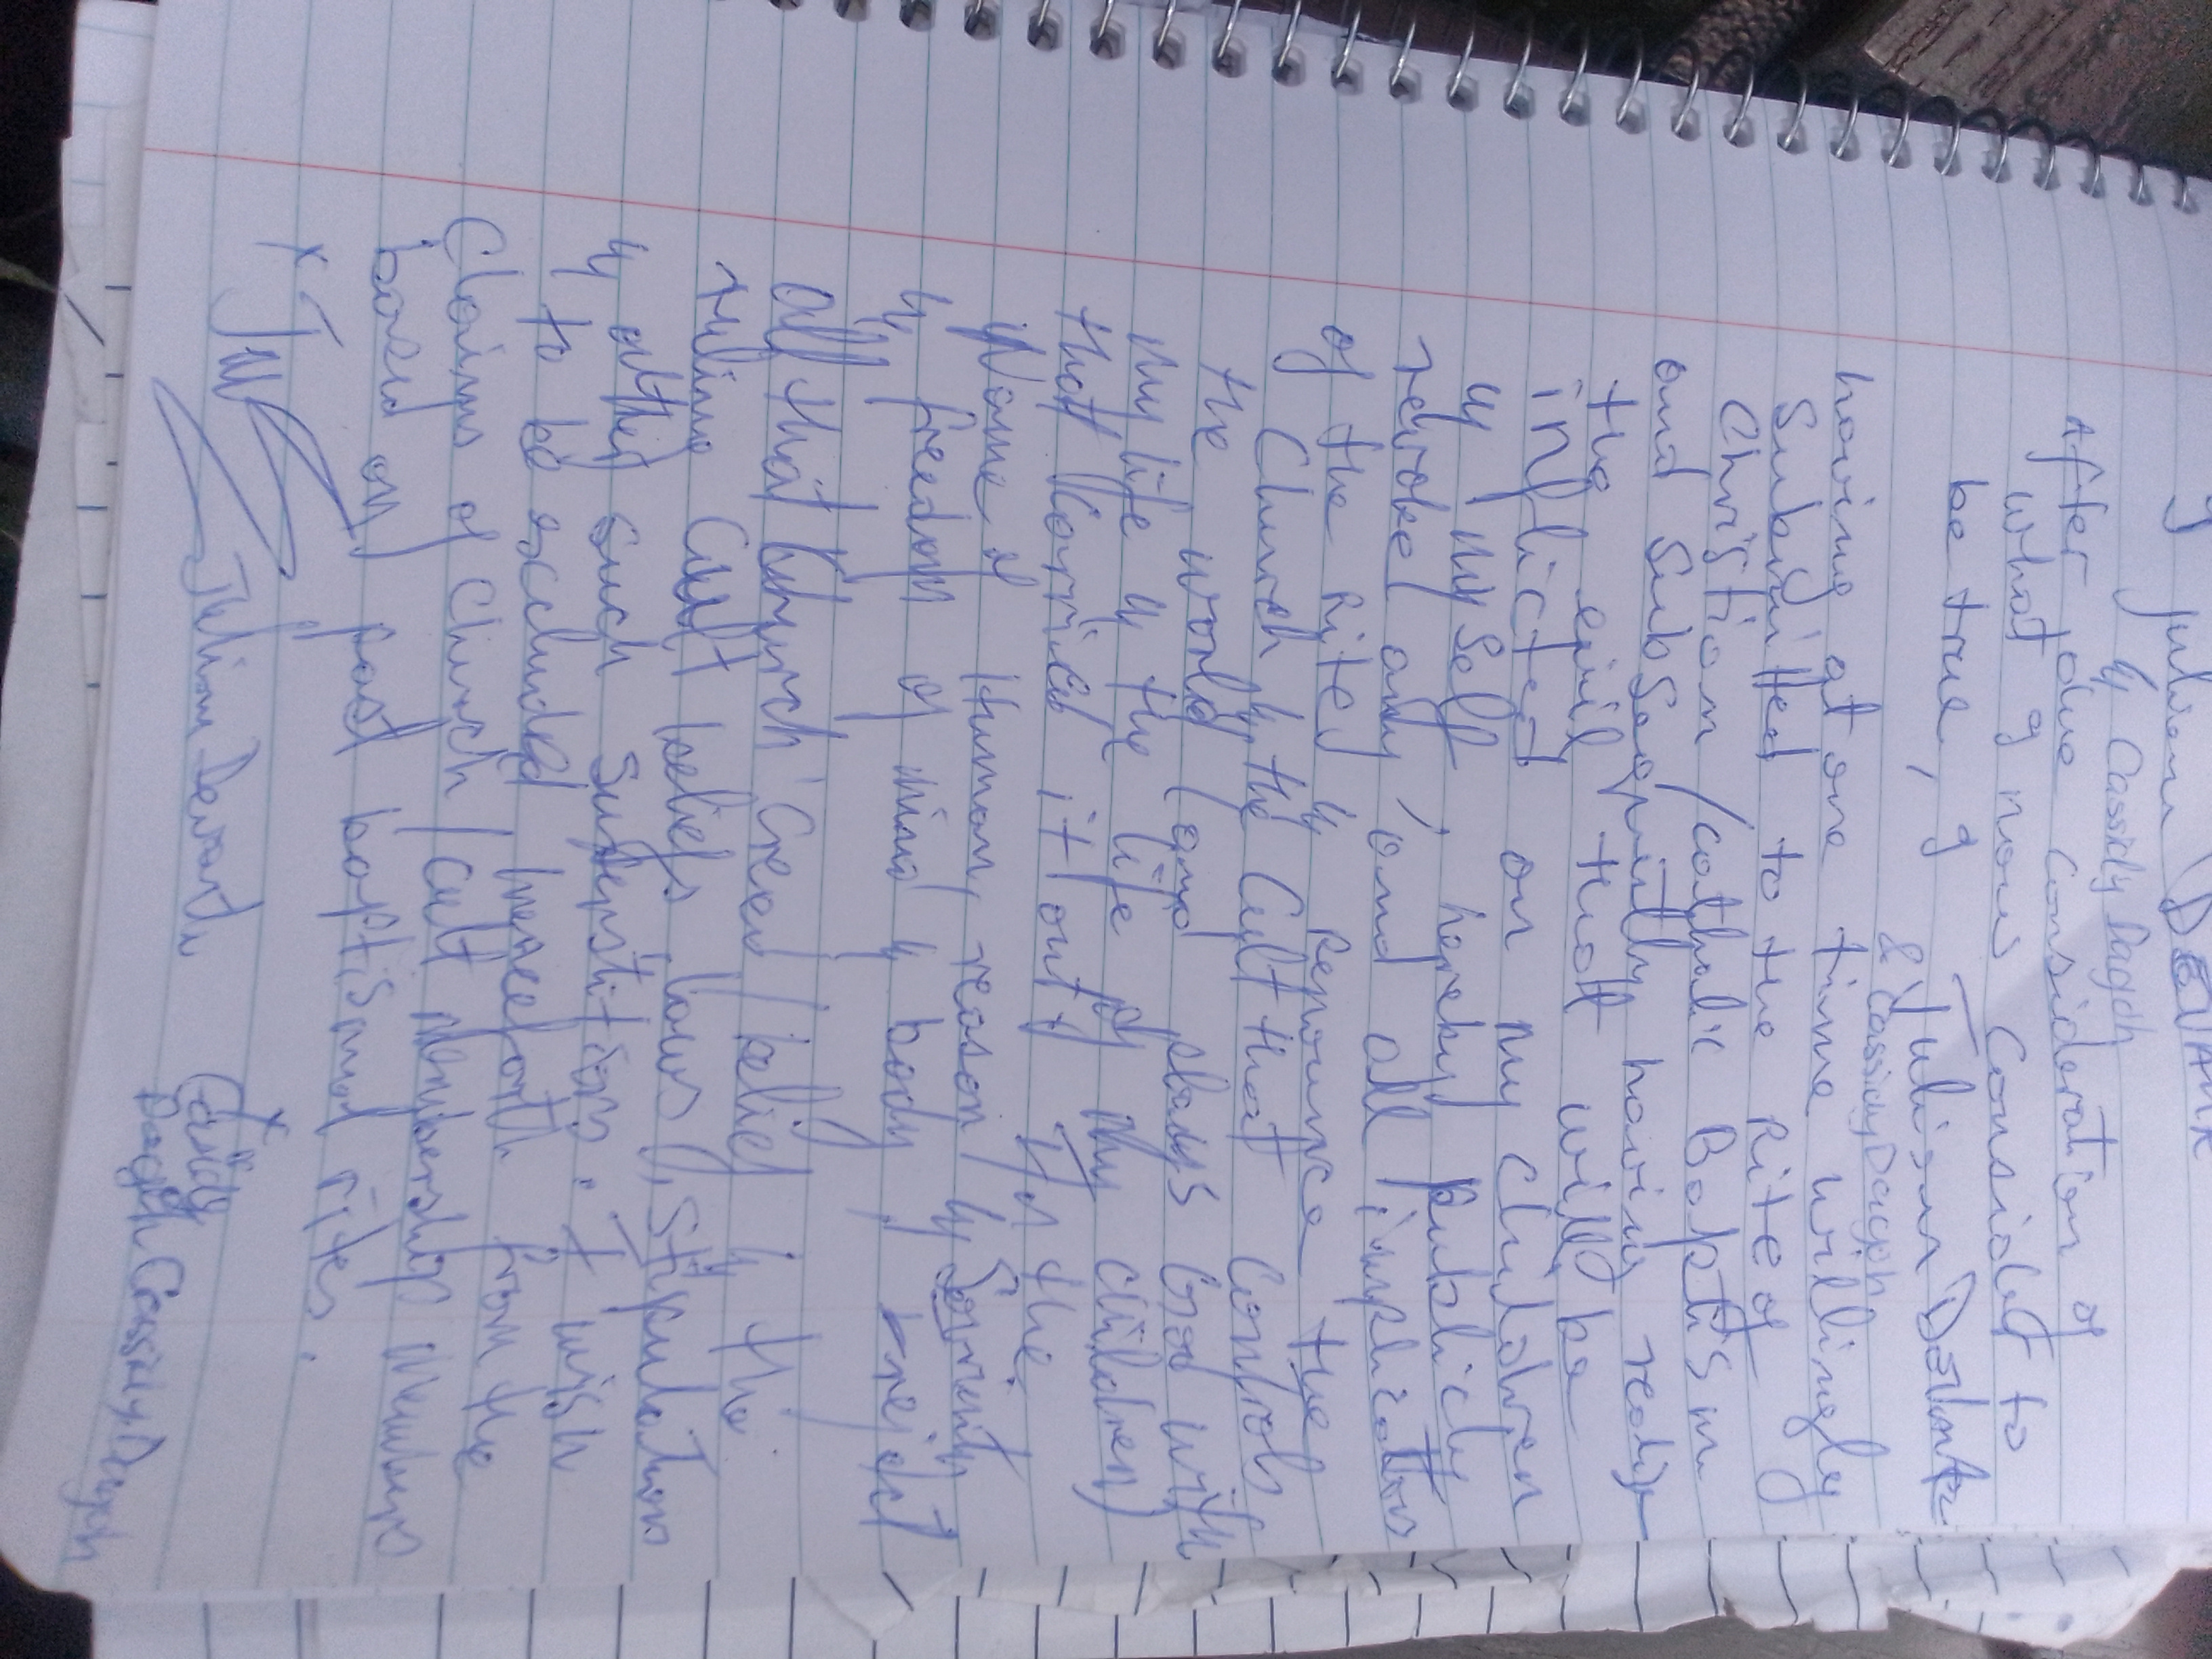 I Julian
& Cassidy Dagph
After due Consideration of
what I now Consider to
be true, I Julian
& Cassidy Dagph
having at one time willingly
Submitted to the Rite of
Christian / catholic Baptism
and Subsequently having
the evil that will be
inflicted on my Children
& my Self, hereby Publicly
and all implications
of the Rite, & Renounce the
Church, the Cult that Controls
the world (and plays God with
my life & the life of my Children)
that Carried it out, In the
Name of Human reason &
& freedom of mind & body I
all that Church Creed / belief & the
Cult beliefs, laws, Stipulations
& other such Superstitions. I wish
& to be excluded henceforth from the
Claims of Church / Cult Membership
based on past baptismal rites.
x
Julian x Cassidy
Dagph Cassidy Dagph